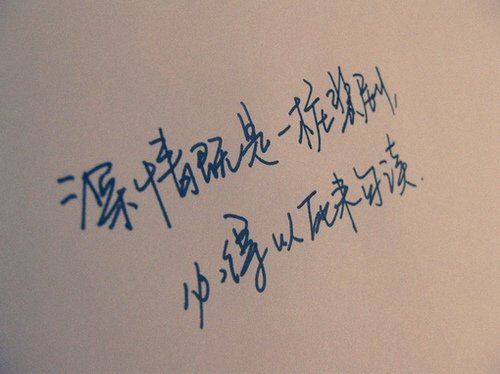 深情既是一桩悲剧,
必得以死来句读.